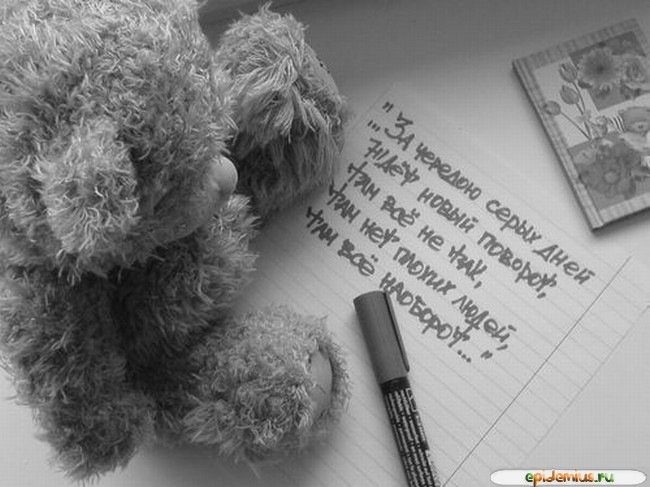 "... За чередою серых дней
ждёт новый поворот,
там всё не так,
там нет плохих людей,
там всё наоборот..."
epidemius.ru